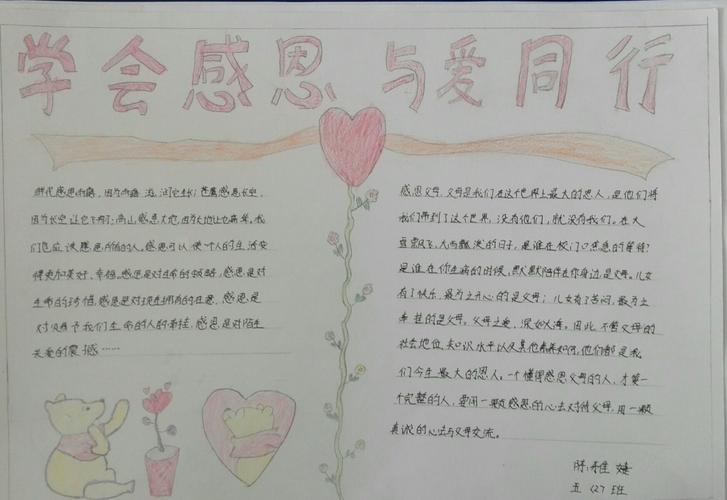 学会感恩 与爱同行
鲜花感恩雨露，因为雨露滋润它生长；苍鹰感恩长空，
因为长空让它飞翔；高山感恩大地，因为大地让它高耸。我
们也应该感恩所有的人。感恩可以使一个人的生活变
得更加美好、幸福。感恩是对生命的领略，感恩是对
生命的珍惜，感恩是对现在拥有的在意，感恩是
对赋予我们生命的人的牵挂，感恩是对陌生
关爱的震撼……
感恩父母，父母是我们在这个世界上最大的恩人，是他们将
我们带到了这个世界，没有他们，就没有我们。在大
雪飘飞，大雨瓢泼的日子，是谁在校门口焦急的等待？
是谁在你生病的时候，默默陪伴在你身边，是父母。儿女
有了快乐，最为之开心的是父母；儿女有了苦闷，最为之
牵挂的是父母。父母之爱，深如大海。因此，不管父母的
社会地位、知识水平以及其他素养如何，他们都是我
们今生最大的恩人。一个懂得感恩父母的人，才算一
个完整的人，要用一颗感恩的心去对待父母，用一颗
真诚的心去与父母交流。
陈雅婕
五（27）班